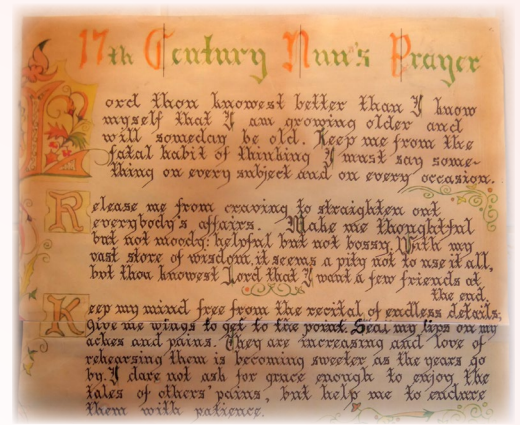 17th Century Nun's Prayer
Lord thou knowest better than I know
myself that I am growing older and
will someday be old. Keep me from the
fatal habit of thinking I must say some-
thing on every subject and on every occasion.
Release me from craving to straighten out
everybody's affairs. Make me thoughtful
but not moody: helpful but not bossy. With my
vast store of wisdom, it seems a pity not to use it all,
but thou knowest Lord that I want a few friends at
the end.
Keep my mind free from the recital of endless details;
give me wings to get to the point. Seal my lips on my
aches and pains. They are increasing and love of
rehearsing them is becoming sweeter as the years go
by. I dare not ask for grace enough to enjoy the
tales of others' pains, but help me to endure
them with patience.